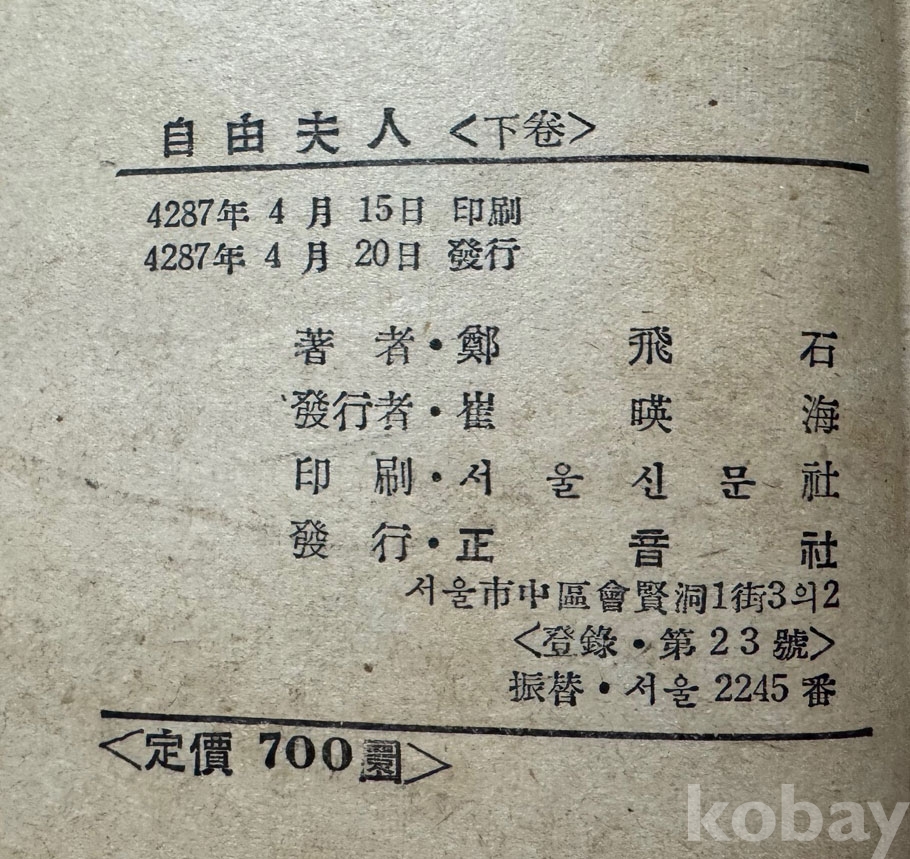 自由夫人 <下卷>
4287年 4 月 15日 印刷
4287年 4 月 20日 發行
著 者・鄭 飛 石
發行者・崔 暎 海
印 刷・서 울 신 문 社
發 行・正 音 社
서울市中區會賢洞1街3의2
<登錄・第23號>
振替・서울 2245 番
<定價 700圜>
kobay